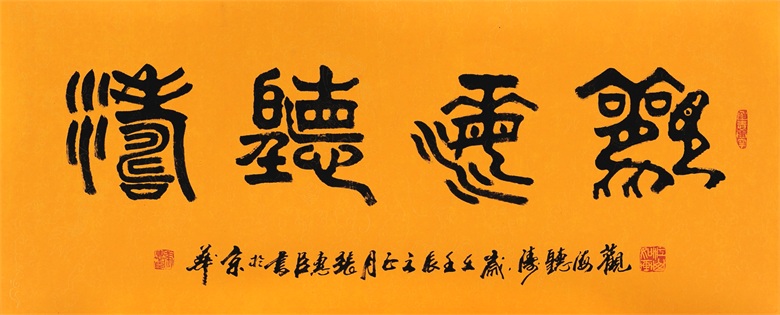 觀海聽濤
觀海聽濤 歲次壬辰之正月張惠臣書於京華